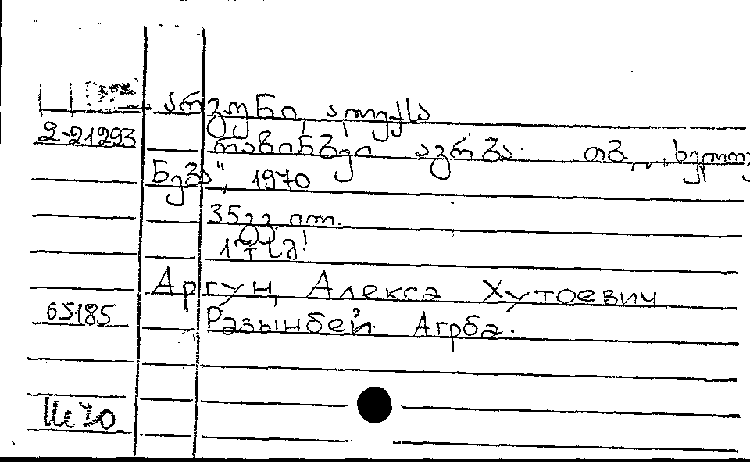 არგუნი, ალექსა
2-21293 რაზინბეი აგრბა. თბ., „ხელოვ
ნება“, 1970
35გვ.
17სმ
Аргун, Алекса Хутоевич
65185 Разынбей Агрба.
70